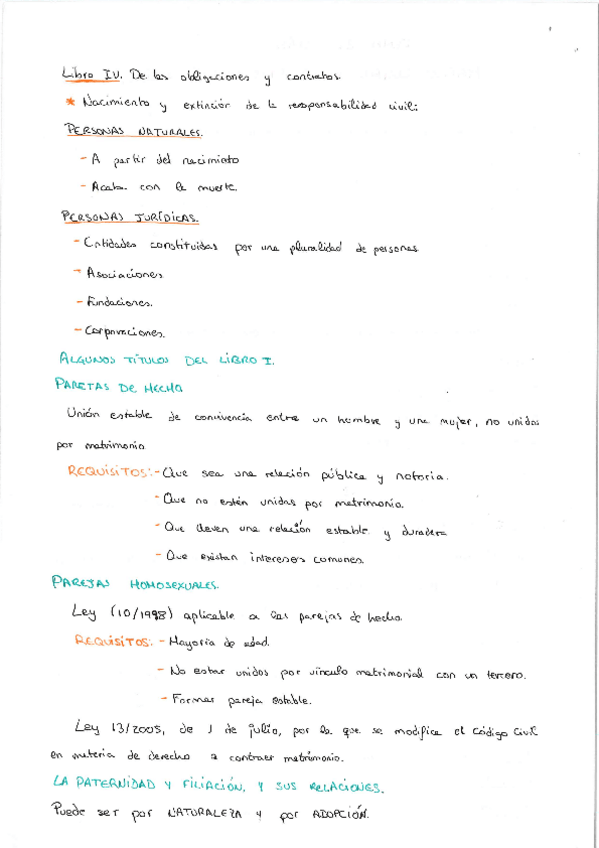 Libro IV. De las obligaciones y contratos.
* Nacimiento y extinción de la responsabilidad civil:
PERSONAS NATURALES.
- A partir del nacimiento
- Acaba con la muerte.
PERSONAS JURÍDICAS.
- Entidades constituidas por una pluralidad de personas.
- Asociaciones
- Fundaciones.
- Corporaciones.
ALGUNOS TÍTULOS DEL LIBRO I.
PAREJAS DE HECHO
Unión estable de convivencia entre un hombre y una mujer, no unidos
por matrimonio.
REQUISITOS: - Que sea una relación pública y notoria.
- Que no estén unidas por matrimonio.
- Que lleven una relación estable y duradera
- Que existan intereses comunes.
PAREJAS HOMOSEXUALES.
Ley (10/1998) aplicable a las parejas de hecho.
REQUISITOS: - Mayoría de edad.
- No estar unidos por vínculo matrimonial con un tercero.
- Formar pareja estable.
Ley 13/2005, de 1 de julio, por la que se modifica el Código Civil
en materia de derecho a contraer matrimonio.
LA PATERNIDAD Y FILIACIÓN, Y SUS RELACIONES.
Puede ser por NATURALEZA y por ADOPCIÓN.